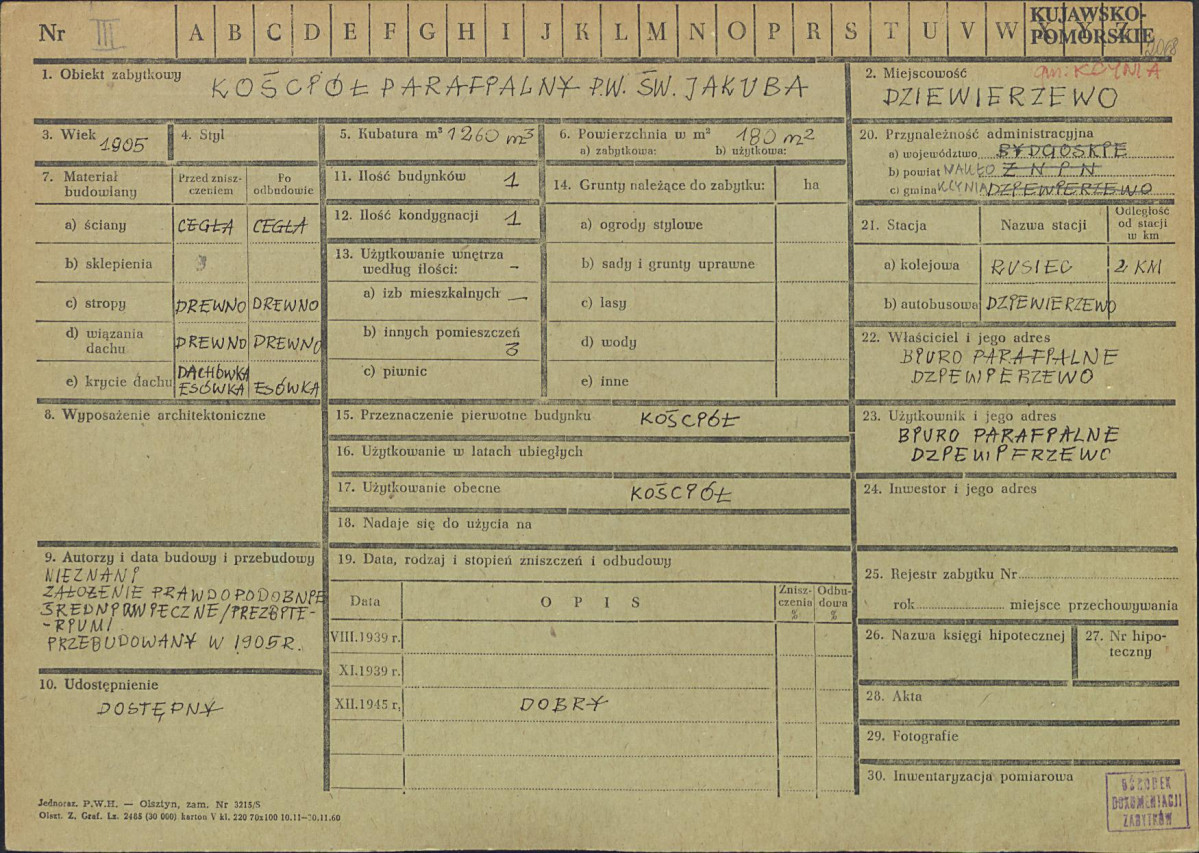 Nr III A B C D E F G H I J K L M N O P R S T U V W X Y Z
KUJAWSKO-
POMORSKIE
2018
1. Obiekt zabytkowy
KOŚCIÓŁ PARAFIALNY P.W. ŚW. JAKUBA
2. Miejscowość
gm. KCYNIA
DZIEWIERZEWO
3. Wiek 1905
4. Styl
5. Kubatura m³ 1260 m³
6. Powierzchnia w m² 180 m²
a) zabytkowa: b) użytkowa:
20. Przynależność administracyjna
a) województwo BYDGOSKIE
b) powiat NAKŁO ŻNIN
c) gmina KCYNIA DZIEWIERZEWO
7. Materiał budowlany
Przed zniszczeniem
Po odbudowie
a) ściany CEGŁA CEGŁA
b) sklepienia
c) stropy DREWNO DREWNO
d) wiązania dachu DREWNO DREWNO
e) krycie dachu DACHÓWKA ESÓWKA ESÓWKA
11. Ilość budynków 1
12. Ilość kondygnacji 1
13. Użytkowanie wnętrza
według ilości: –
a) izb mieszkalnych —
b) innych pomieszczeń
3
c) piwnic
14. Grunty należące do zabytku: ha
a) ogrody stylowe
b) sady i grunty uprawne
c) lasy
d) wody
e) inne
21. Stacja
Nazwa stacji
Odległość
od stacji
w km
a) kolejowa RUSIEC 2 KM
b) autobusowa DZIEWIERZEWO
22. Właściciel i jego adres
BIURO PARAFIALNE
DZIEWIERZEWO
8. Wyposażenie architektoniczne
15. Przeznaczenie pierwotne budynku KOŚCIÓŁ
16. Użytkowanie w latach ubiegłych
17. Użytkowanie obecne KOŚCIÓŁ
18. Nadaje się do użycia na
23. Użytkownik i jego adres
BIURO PARAFIALNE
DZIEWIERZEWO
24. Inwestor i jego adres
9. Autorzy i data budowy i przebudowy
NIEZNANI
ZAŁOŻENIE PRAWDOPODOBNIE
ŚREDNIOWIECZNE/PREZBITE-
-RIUM/
PRZEBUDOWANY W 1905R.
10. Udostępnienie
DOSTĘPNY
19. Data, rodzaj i stopień zniszczeń i odbudowy
Data
O P I S
Zniszczenia %
Odbudowa %
VIII.1939 r.
XI.1939 r.
XII.1945 r. DOBRY
25. Rejestr zabytku Nr
rok miejsce przechowywania
26. Nazwa księgi hipotecznej
27. Nr hipoteczny
28. Akta
29. Fotografie
30. Inwentaryzacja pomiarowa
OŚRODEK
DOKUMENTACJI
ZABYTKÓW
Jednoraz. P.W.H. — Olsztyn, zam. Nr 3215/S
Olszt. Z. Graf. Lz. 2485 (30 000) karton V kl. 220 70x100 10.11—30.11.60